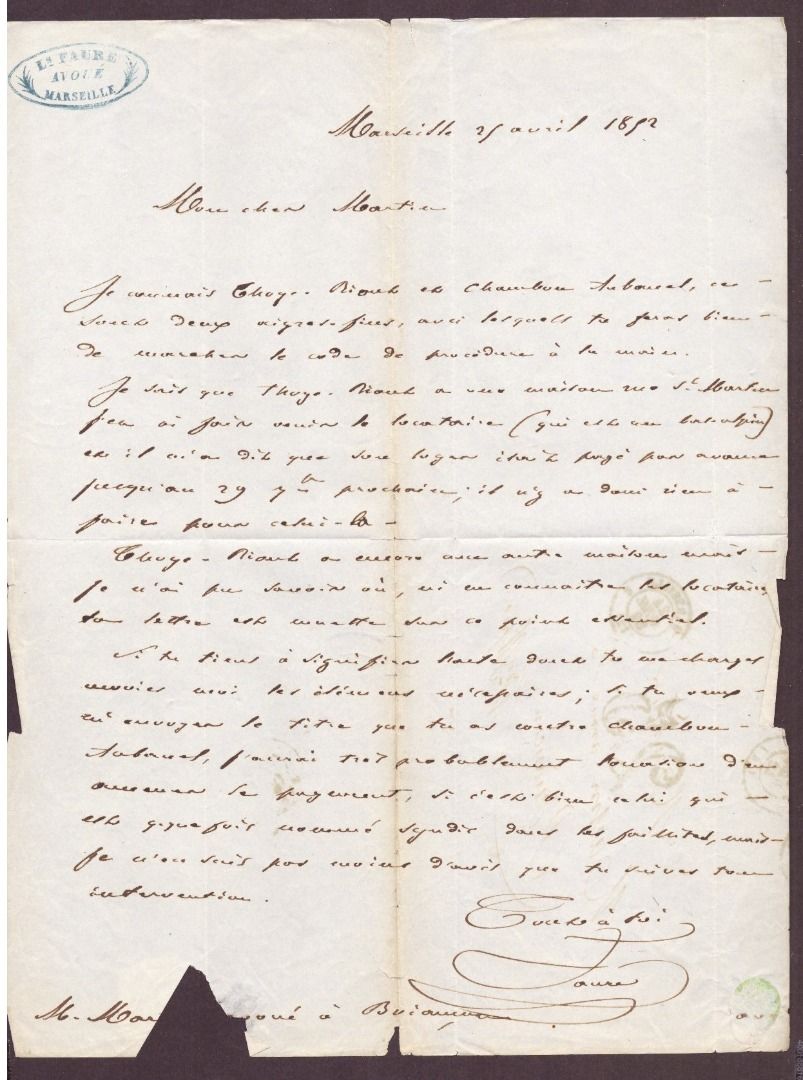 Ls FAURE
AVOUÉ
MARSEILLE
Marseille 25 avril 1852
Mon cher Martin
Je connais Thoye-Riont et Chambon Aubanel, ce
sont deux aigrefins, avec lesquels tu feras bien
de marcher le code de procédure à la main.
Je sais que Thoye-Riont a une maison rue St Martin
j'en ai fait venir le locataire (qui est un bas alpin)
et il m'a dit que son loyer était payé par avance
jusqu'au 29 7bre prochain; il n'y a donc rien à
faire pour celui-là
Thoye-Riont a encore une autre maison mais
je n'ai pu savoir où, ni en connaitre les locataires
ta lettre est muette sur ce point essentiel.
Si tu tiens à signifier l'acte dont tu me charges
envoies moi les élémens nécessaires; si tu veux
m'envoyer le titre que tu as contre Chambon
Aubanel, j'aurai très probablement l'occasion d'en
amener le payement, si c'est bien celui qui
est qquefois nommé syndic dans les faillites, mais
je n'en suis pas moins d'avis que tu suives ton
intervention.
Tout à toi
Faure
M. Mar voué à Briançon